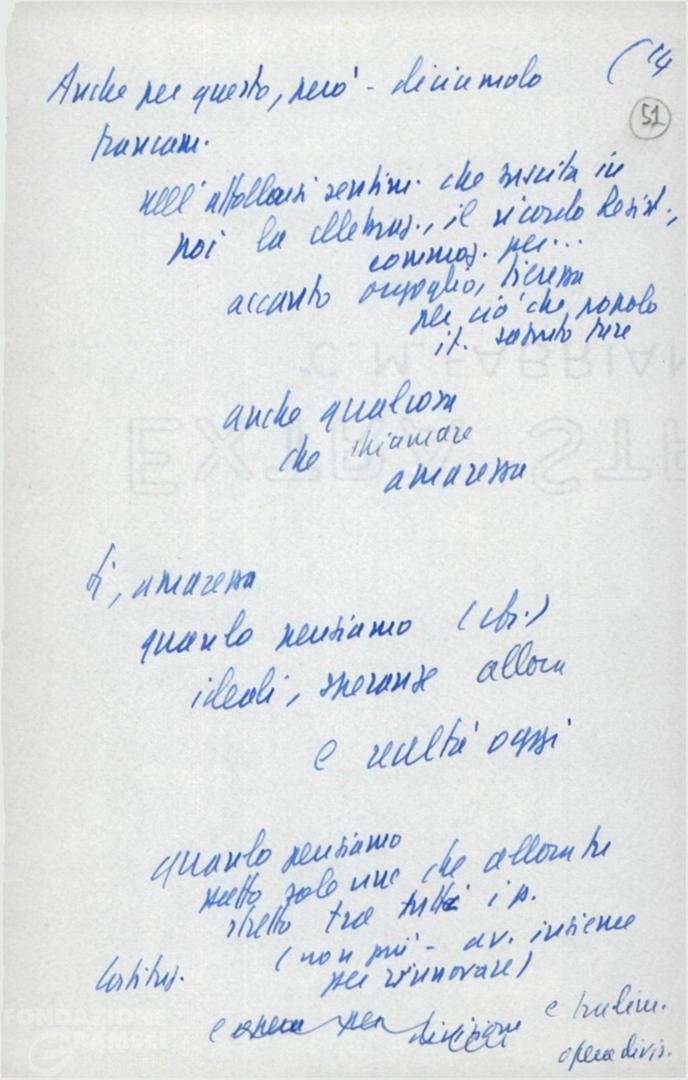 Anche per questo, però - diciamolo
(14
51
francam.
nell'affollarsi sentim. che suscita in
noi la celebraz., il ricordo Resist.,
commoz. per...
accanto orgoglio, fierezza
per ciò che popolo
it. saputo fare
anche qualcosa
che chiamare
amarezza
Sì, amarezza
quando pensiamo
ideali, speranze allora
e realtà oggi
quando pensiamo
patto che allora
stretto tra tutti i p.
(non più - av. insieme
per rinnovare)
Costituz.
e opera per divisione
e tradim.
opera divis.
FONDAZIONE
GRAMSCI
C. M. FABRIAN
EXTRA STR